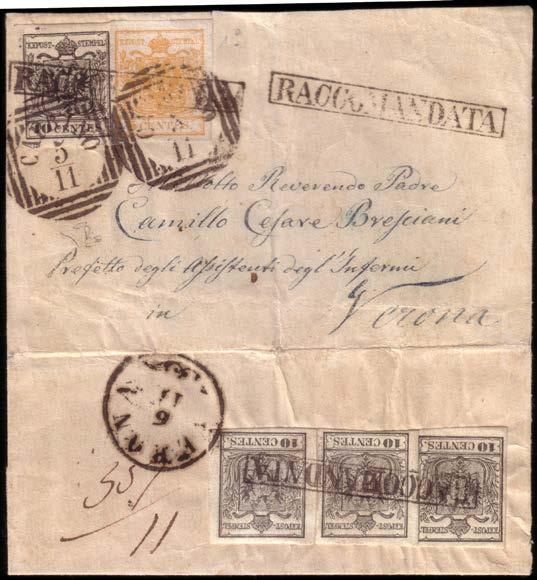 KKPOST-STEMPEL
KKPOST-STEMPEL
RACCOMANDATA
10 CENTES
CENTES
5
11
11
Molto Reverendo Padre
Camillo Cesare Bresciani
Prefetto degli Assistenti degl'Infermi
in Verona
VERONA
11
6
10 CENTES.
10 CENTES.
10 CENTES.
RACCOMANDATA
KKPOST-STEMPEL
KKPOST-STEMPEL
KKPOST-STEMPEL
11